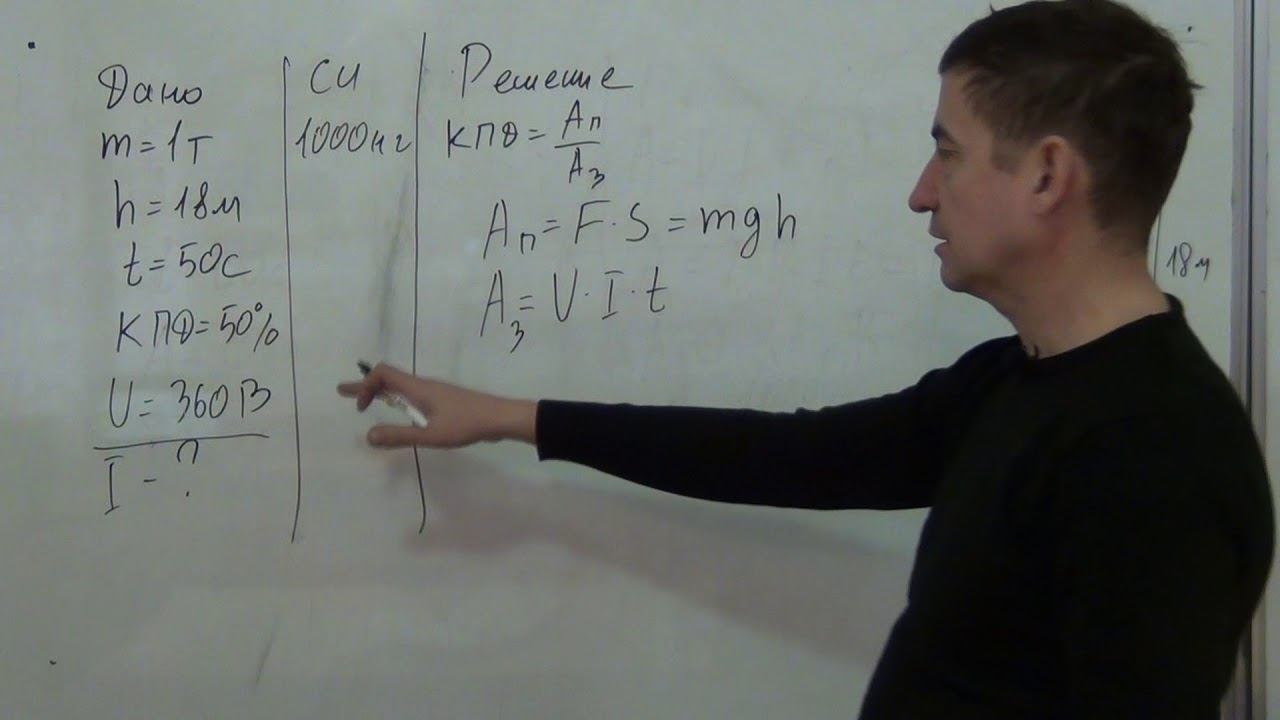 Дано
m = 1т
h = 18м
t = 50с
КПД = 50%
U = 360В
I - ?
СИ
1000кг
Решение
КПД = Aп / Aз
Aп = F · S = mgh
Aз = U · I · t
18м